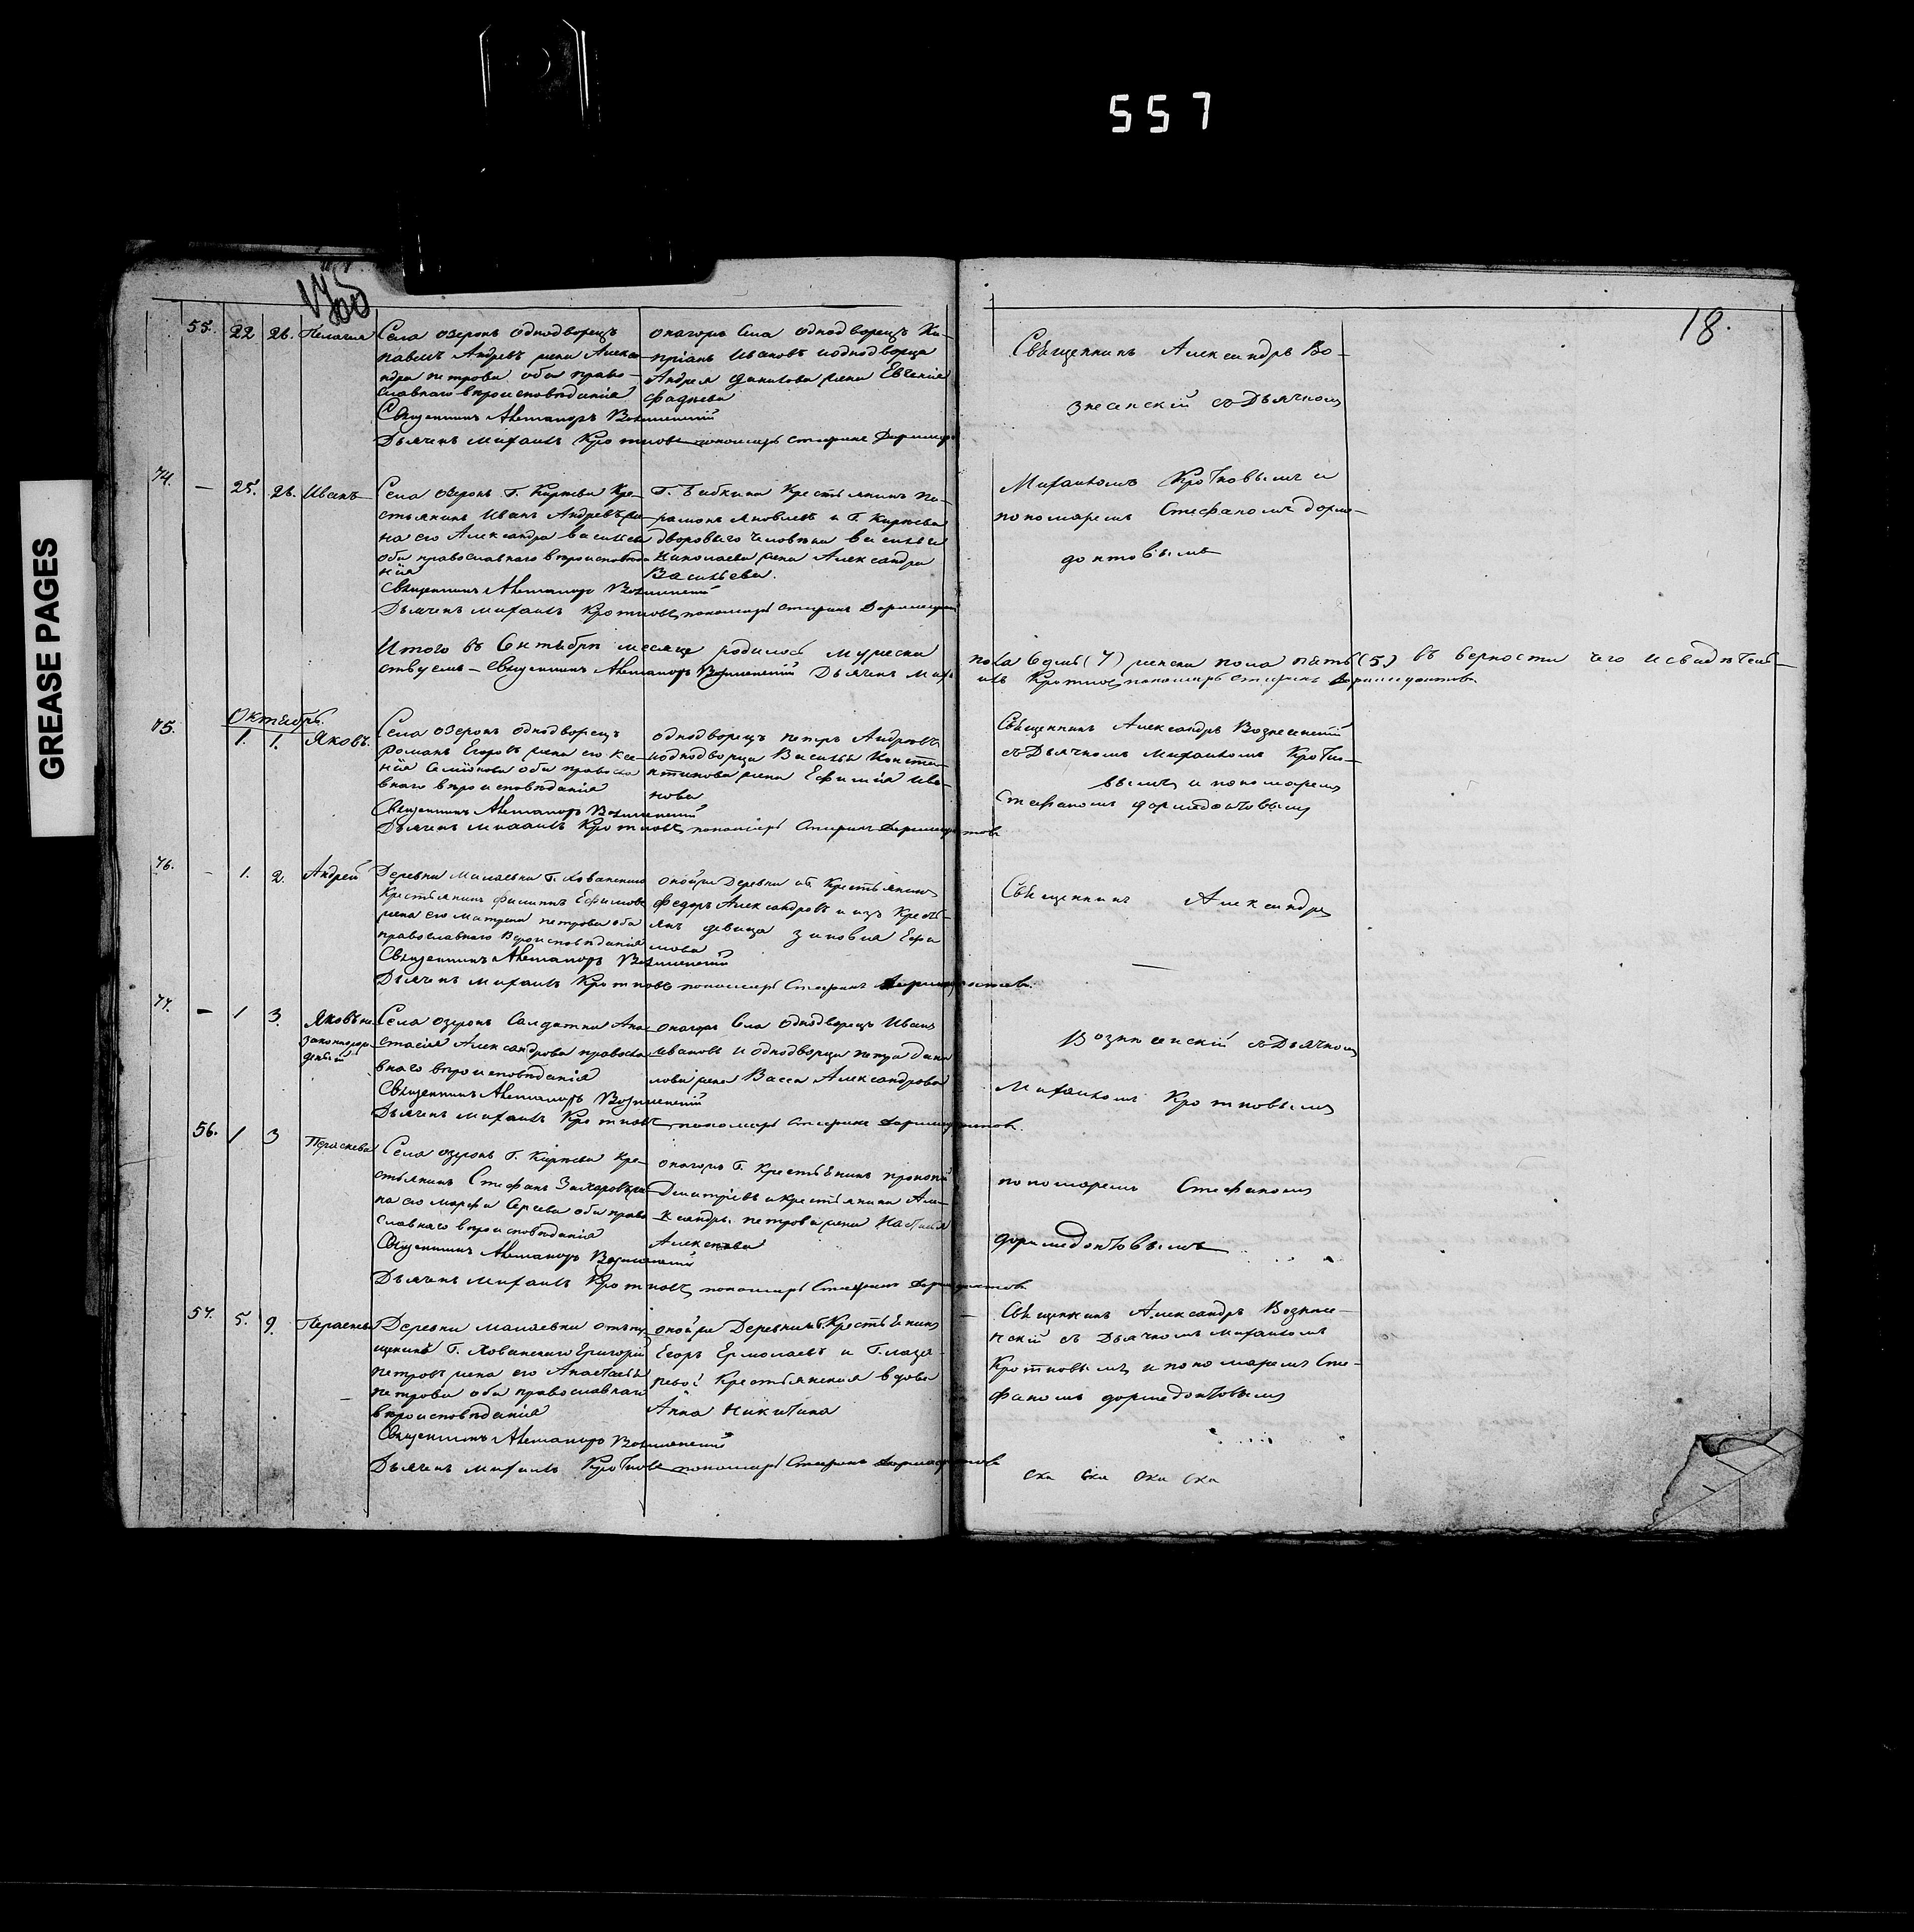 557
GREASE PAGES
18.
55. 22 26. Пелагия
Села озерокъ однодворецъ
павелъ Андревъ жена Алекса-
ндра петрова оба право-
славнаго вероисповѣданія
Священникъ Александръ Вознесенскій
Дьячекъ михаилъ Кротковъ пономарь стефанъ
онагожъ Села однодворецъ Ки-
пріанъ Ивановъ иоднодворца
Андрея данилова жена Евгенія
фадѣева
Священникъ Александръ Во-
знесенскій съ Дьячкомъ
74. — 25. 26. Иванъ
Села озерокъ Г. Киреева Кре-
стьянинъ Иванъ Андревъ же-
на его Александра васильева
оба православнаго вероисповѣда-
нія
Священникъ Александръ Вознесенскій
Дьячекъ михаилъ Кротковъ пономарь стефанъ
Г. Бибкина Крестьянинъ Па-
рамонъ яковлевъ и Г. Киреева
двороваго человѣка василья
николаева жена Александра
Васильева.
Михаиломъ Кротковымъ и
пономаремъ Стефаномъ дорме-
донтовымъ
Итого въ Сентябрѣ месяце родилось мужеска
пола Седмь (7) женска пола пять (5) въ верности чего и свидѣтель-
ствуемъ — Священникъ Александръ Вознесенскій Дьячекъ Миха-
илъ Кротковъ пономарь Стефанъ Дормедонтовъ
Октябрь.
75. 1. 1. Яковъ.
Села озерокъ однодворецъ
Романъ Егоровъ жена его Ксе-
нія Семіонова оба правосла-
внаго вероисповѣданія
Священникъ Александръ Вознесенскій
Дьячекъ михаилъ Кротковъ, пономарь Стефанъ Дормедонтовъ
однодворецъ петръ Андреевъ
иоднодворца Василья Конста-
нтинова жена Ефимія ива-
нова
Священникъ Александръ Вознесенскій
съ Дьячкомъ михаиломъ Кротко-
вымъ и пономаремъ
Стефаномъ дормедонтовымъ
76. - 1. 2. Андрей
Деревни Малаевки Г. Хованскаго
Крестьянинъ филиппъ Ефимовъ
жена его матрена петрова оба
православнаго Вероисповѣданія
Священникъ Александръ Вознесенскій
Дьячекъ михаилъ Кротковъ пономарь Стефанъ Дормедонтовъ.
оной же Деревни Крестьянинъ
федоръ Александровъ и изъ Кресть-
янъ девица зиновия Ефи-
мова
Священникъ Александръ
77. — 1 3. Яковъ не-
законнорож-
денный
Села озерокъ Салдатка Ана-
стасія Александрова правосла-
внаго вероисповѣданія
Священникъ Александръ Вознесенскій
Дьячекъ михаилъ Кротковъ пономарь Стефанъ Дормедонтовъ.
онагожъ Села однодворецъ Иванъ
ивановъ и однодворца петра дани-
лова жена Васса Александрова
Вознесенскій съ Дьячкомъ
Михаиломъ Кротковымъ
56. 1 3 Параскева
Села озерокъ Г. Киреева Кре-
стьянинъ Стефанъ Захаровъ же-
на его марфа Сергева оба право-
славнаго вероисповѣданія
Священникъ Александръ Вознесенскій
Дьячекъ михаилъ Кротковъ, пономарь Стефанъ Дормедонтовъ
онагожъ Г. Крестьянинъ прокопій
Дмитріевъ икрестьянина Але-
ксандра петрова жена Настасья
Алексеева
пономаремъ Стефаномъ
дормедонтовымъ
57. 5. 9. Параскева
Деревни малаевки отпу-
щеникъ Г. Хованскаго Григорій
петровъ жена его Анастасья
петрова оба православнаго
вероисповѣданія
Священникъ Александръ Вознесенскій
Дьячекъ михаилъ Кротковъ пономарь Стефанъ Дормедонтовъ
оной же Деревни Г. Крестьянинъ
Егоръ Ермолаевъ и Г. лаза-
ревой Крестьянская вдова
Анна никитина
Священникъ Александръ Вознесе-
нскій съ Дьячкомъ михаиломъ
Кротковымъ и пономаремъ Сте-
фаномъ дормедонтовымъ